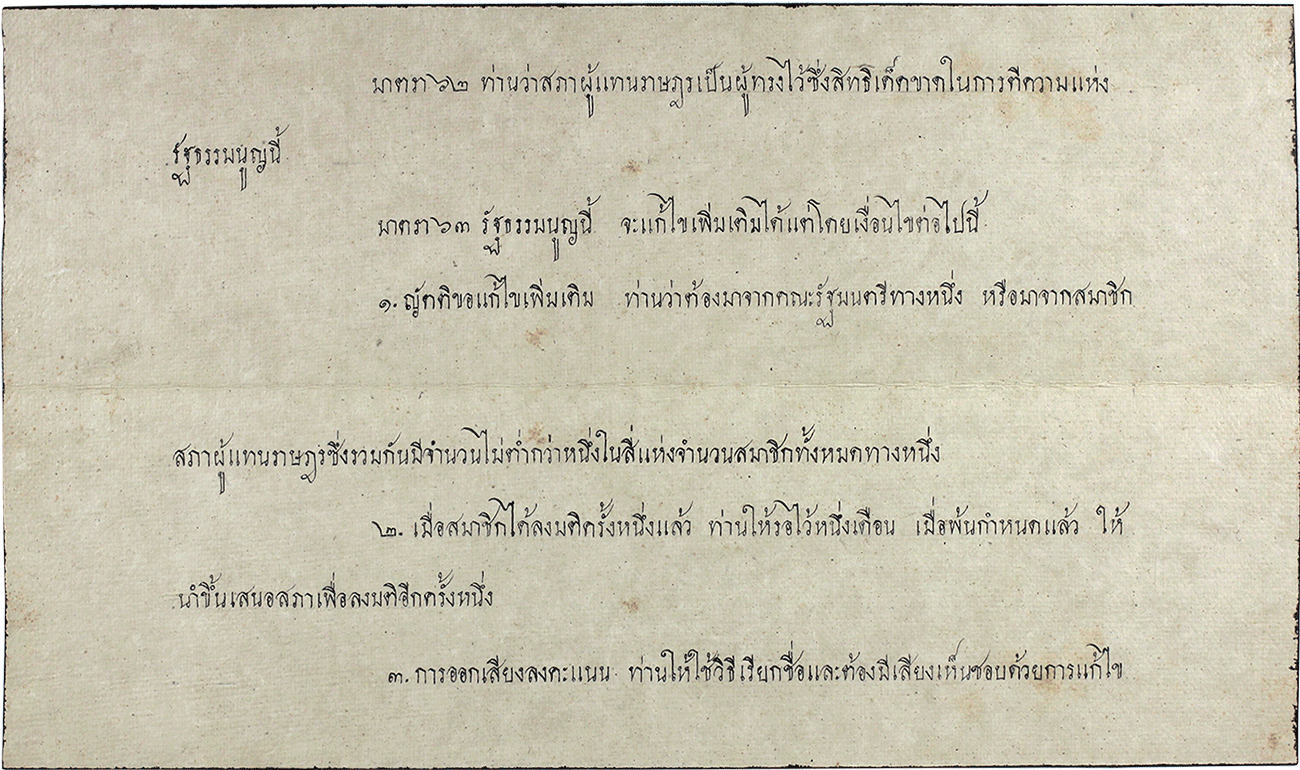 มาตรา ๖๒ ท่านว่าสภาผู้แทนราษฎรเป็นผู้ทรงไว้ซึ่งสิทธิเด็ดขาดในการตีความแห่ง
รัฐธรรมนูญนี้
มาตรา ๖๓ รัฐธรรมนูญนี้ จะแก้ไขเพิ่มเติมได้แต่โดยเงื่อนไขต่อไปนี้
๑. ญัตติขอแก้ไขเพิ่มเติม ท่านว่าต้องมาจากคณะรัฐมนตรีทางหนึ่ง หรือมาจากสมาชิก
สภาผู้แทนราษฎรซึ่งรวมกันมีจำนวนไม่ต่ำกว่าหนึ่งในสี่แห่งจำนวนสมาชิกทั้งหมดทางหนึ่ง
๒. เมื่อสมาชิกได้ลงมติครั้งหนึ่งแล้ว ท่านให้รอไว้หนึ่งเดือน เมื่อพ้นกำหนดแล้ว ให้
นำขึ้นเสนอสภาเพื่อลงมติอีกครั้งหนึ่ง
๓. การออกเสียงลงคะแนน ท่านให้ใช้วิธีเรียกชื่อและต้องมีเสียงเห็นชอบด้วยการแก้ไข